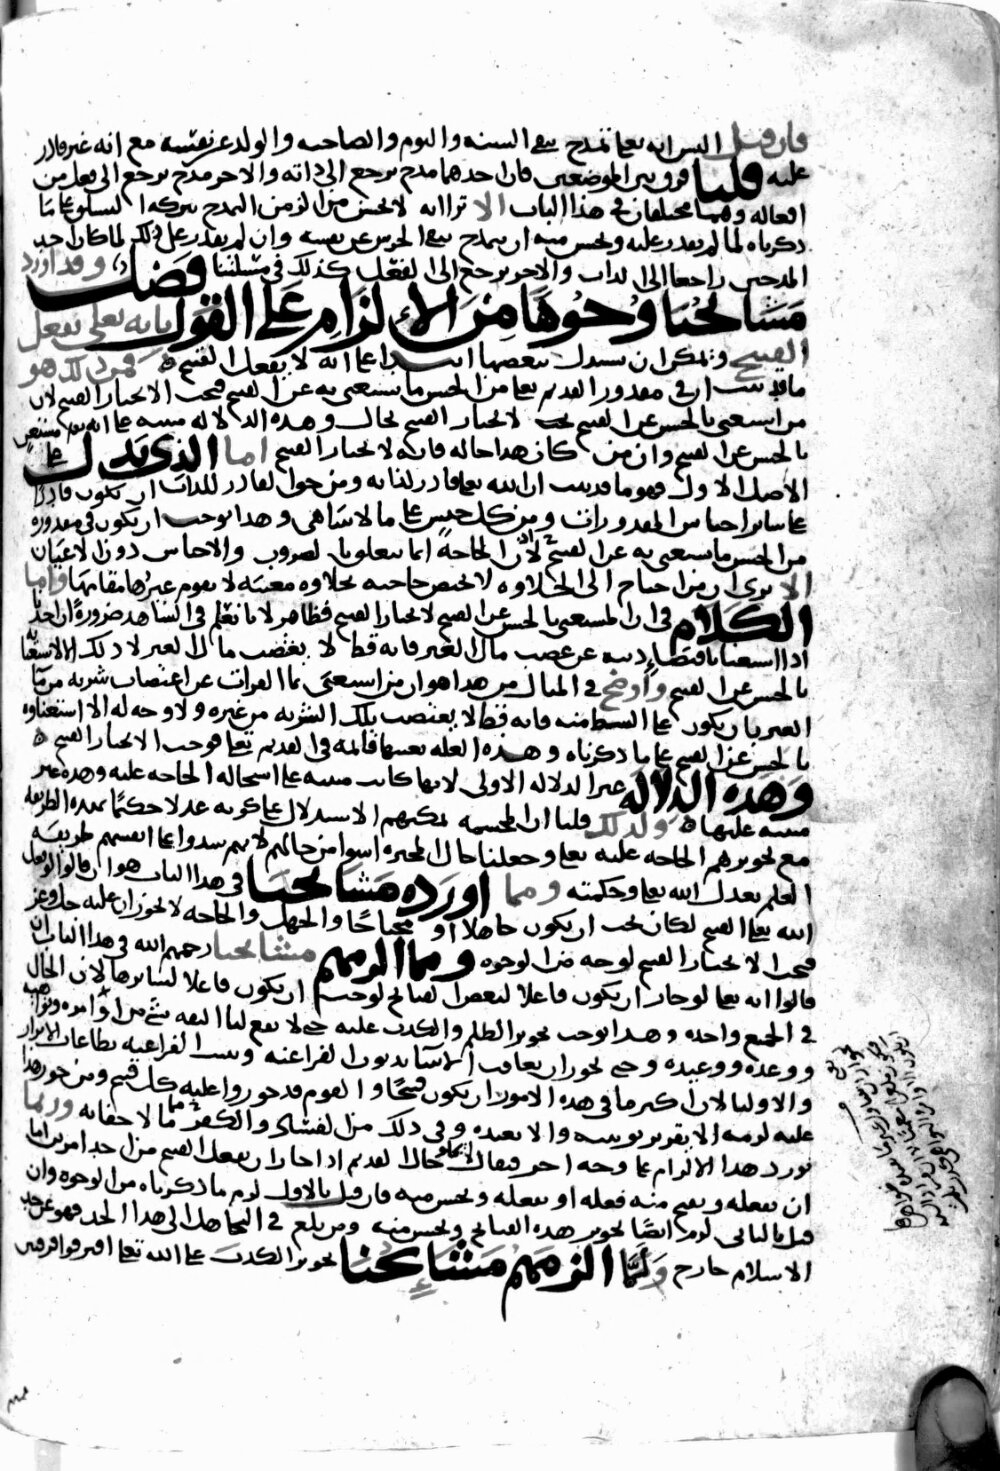 فان قيل اليس انه تعالى تمدح بنفي السنه والنوم والصاحبه والولد عن نفسه مع انه غير قادر
عليه قلنا فرق بين الموضعين فان احدهما مدح يرجع الى ذاته والاخر مدح يرجع الى فعل من
افعاله وهما مختلفان في هذا الباب الا ترا انه لا يحسن من الزمن التمدح بتركه التسلق على ما
ذكرناه لما لم يقدر عليه ويحسن منه ان يتمدح بنفي الخرس عن نفسه وان لم يقدر على ذلك لما كان احد
المدحين راجعا الى الذات والاخر يرجع الى الفعل كذلك في مسئلتنا فصل وقد اورد
مشايخنا وجوها من الالزام على القول بانه تعالى يفعل
القبيح ويمكن ان يستدل ببعضها ابتداء على انه لا يفعل القبيح فمن ذلك هو
ما قد ثبت ان في مقدور القديم تعالى من الحسن ما يستغني به عن القبيح فيجب الا يختار القبيح لان
من استغنى بالحسن عن القبيح لا يختار القبيح بحال وهذه الدلاله مبنيه على انه تعالى مستغن
بالحسن عن القبيح وان من كان هذا حاله فانه لا يختار القبيح اما الذي يدل على
الاصل الاول فهو ما قد ثبت ان الله تعالى قادر لذاته ومن حق القادر للذات ان يكون قادرا
على سائر اجناس المقدورات ومن كل جنس على ما لا يتناهى وهذا يوجب ان يكون في مقدوره
من الحسن ما يستغني به عن القبيح لان الحاجة انما تتعلق بالضروب والاجناس دون الاعيان
الا ترى ان من احتاج الى الحلاوه لا يختص حاجته بحلاوه معينه لا يقوم غيرها مقامها واما
الكلام في ان المستغني بالحسن عن القبيح لا يختار القبيح فظاهر لانا نعلم في الشاهد ضرورة ان احدنا
اذا استغنا باقتضا دينه عن غصب مال الغير فانه قط لا يغصب مال الغير لا ذلك الا لاستغنائه
بالحسن عن القبيح واوضح في المثال من هذا هو ان من استغنى بماء الفرات عن اغتصاب شربه من ماء
الغير بان يكون على الشط منه فانه قط لا يغتصب تلك الشربه من غيره ولا وجه له الا استغناوه
بالحسن عن القبيح على ما ذكرناه وهذه العله بعينها قائمه في القديم تعالى فوجب الا يختار القبيح
وهذه الدلاله غير الدلاله الاولى لانها كانت مبنيه على استحاله الحاجه عليه وهذه غير
مبنيه عليها ولذلك قلنا ان المجسمه يمكنهم الاستدلال على كونه عدلا حكيما بهذه الطريقه
مع تجويزهم الحاجه عليه تعالى وجعلنا حال المجبره اسوا من حالهم لانهم سدوا على انفسهم طريقه
العلم بعدل الله تعالى وحكمته ومما اورده مشايخنا في هذا الباب هو ان قالوا لو فعل
الله تعالى القبيح لكان يجب ان يكون جاهلا او محتاجا والجهل والحاجه لا يجوزان عليه جل وعز
فيجب الا يختار القبيح لوجه من الوجوه ومما الزمهم مشايخنا رحمهم الله في هذا الباب ان
قالوا انه تعالى لو جاز ان يكون فاعلا لبعض القبائح لوجب ان يكون فاعلا لسائرها لان الحال
في الجميع واحده وهذا يوجب تجويز الظلم والكذب عليه حتى لا يقع لنا الثقه بشي من اوامره ونواهيه
ووعده ووعيده وحتى يجوز ان يعاقب الانبيا بذنوب الفراعنه ويثيب الفراعنه بطاعات الابرار
والاوليا لان اكثر ما في هذه الامور ان يكون قبيحا والقوم قد جوزوا عليه كل قبيح ومن جوز هذا
عليه لزمه الا يقر بربوبيته والا يعبده وفي ذلك من الفساد والكفر ما لا خفا به وربما
نورد هذا الالزام على وجه اخر فيقال القديم اذا جاز ان يفعل القبيح من احد امرين اما
ان يفعله ويقبح منه فعله او يفعله ويحسن منه فان قيل بالاول لزم ما ذكرناه من الوجوه وان
قيل بالثاني لزم ايضا تجويز هذه القبائح ويحسن منه ومن بلغ في التجاهل الى هذا الحد فهو عن حد
الاسلام خارج ولما الزمهم مشايخنا تجويز الكذب على الله تعالى افترقوا فرقتين